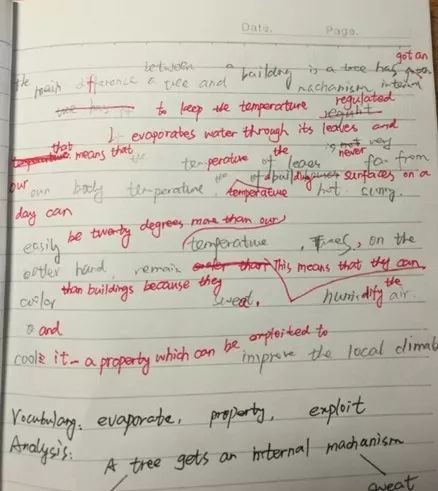 Date. Page.
got an
between a building is a tree has
the main difference a tree and machanism internal
tree has it to keep the temperature regulated
It evaporates water through its leaves and
that
temperature means that the temperature of the leaves is not never very far from
our own body temperature. the temperature of a building surfaces on a hot sunny
day can
easily be twenty degrees more than our temperature, Trees, on the
other hand, remain cooler than This means that they can
coolor than buildings because they sweat, humidify the air
and
cools it - a property which can be exploited to improve the local climat
Vocabulary: evaporate, property, exploit
Analysis: A tree gets an internal machanism
sweat